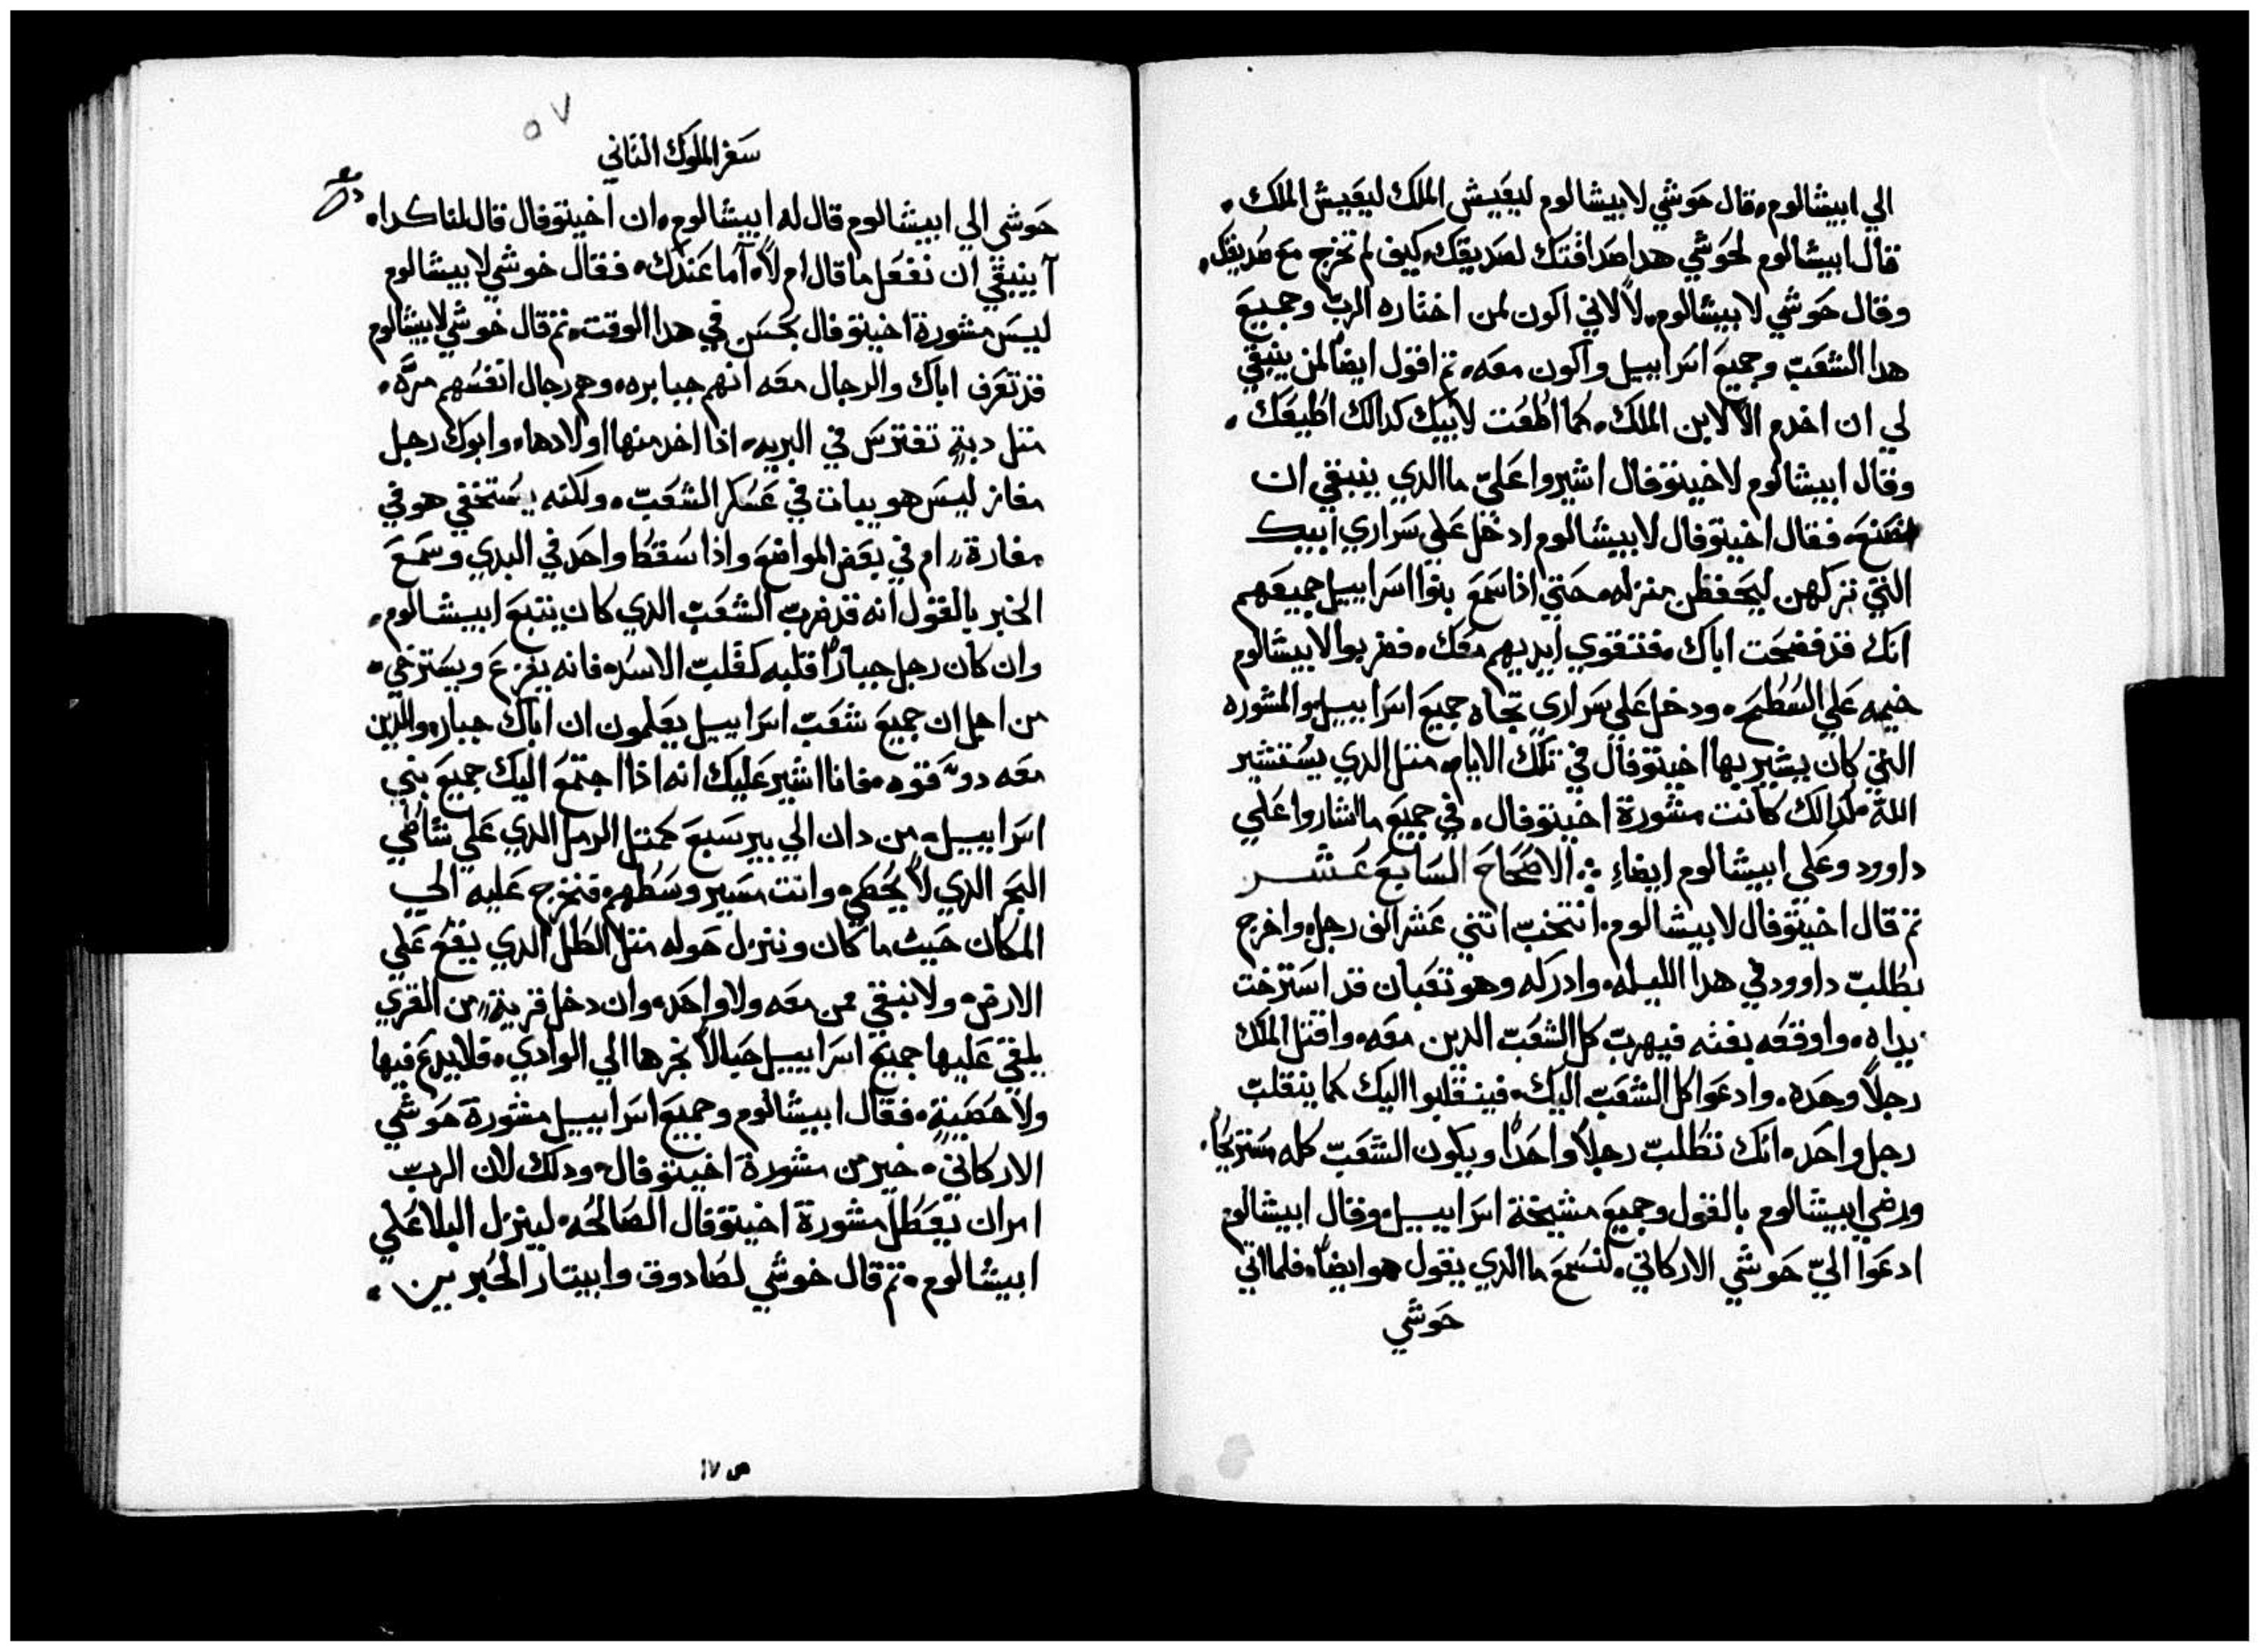 الي ابيشالوم، وقال حَوشي لابيشالوم ليعَيش الملك ليعَيش الملك.
قال ابيشالوم لحَوشي هدا صَداقتك لصَديقك، كيف لم تخرج مع صَديقك.
وقال حَوشي لابيشالوم، لا لاني اكون لمن اختاره الربّ وجميعَ
هدا الشعَبّ وجميعَ اسَراييل واكون معَه، تم اقول ايضاً لمن ينبغي
لي ان اخدم الا لابن الملك، كما اطعَت لابيك كدالك اطيعَك.
وقال ابيشالوم لاخيتوفال اشيروا عَليّ ماالدي ينبغي ان
اصَنعَ، فقال اخيتوفال لابيشالوم ادخل عَلي سَراري ابيك
التي تركهن ليحَفظن منزله، حَتي اذا سَمعَ بنوا اسَراييل جميعَهم
انك قد فضحَت اباك، فتتقوي ايديهم معَك، فضربوا لابيشالوم
خيمه عَلي السُطحَ، ودخل عَلي سَراري تجاه جميعَ اسَراييل، والمشوره
التي كان يشير بها اخيتوفال في تلك الايام، متل الدي يسَتشير
اللّه، كدالك كانت مشورة اخيتوفال، في جميعَ ما اشاروا عَلي
داوود وعَلي ابيشالوم ايضاء ܀ الاصَحَاحَ السَابعَ عَشر
تم قال اخيتوفال لابيشالوم، انتخبّ اتني عَشر الف رجل، واخرج
بطلبّ داوود في هدا الليله، وادركه وهو تعَبان قد اسَترخت
يداه، واوقعَه بغته فيهربّ كل الشعَبّ الدين معَه، واقتل الملك
رجلاً وحَده، وادعَوا كل الشعَبّ اليك، فينقلبوا اليك كما ينقلبّ
رجل واحَد، انك تطلبّ رجلاً واحَداً ويكون الشعَبّ كله مسَتريحَاً.
ورضي ابيشالوم بالقول وجميعَ مشيخة اسَراييل، وقال ابيشالوم
ادعَوا اليّ حَوشي الاركاني، لنسَمعَ ماالدي يقول هو ايضاً، فلما اتي
حَوشي
٥٧
سَفر الملوك التاني
حَوشي الي ابيشالوم قال له ابيشالوم، ان اخيتوفال قال لنا كدا،
آ ينبغي ان نفعَل ما قال ام لا، آما عَندك، فقال خوشي لابيشالوم
ليسَ مشورة اخيتوفال بحَسَن في هدا الوقت، تم قال خوشي لابيشالوم
قد تعَرف اباك والرجال معَه انهم جبابره، وهم رجال انفسُهم مرَّه،
متل دبةٍ تفترسَ في البريه، اذا اخد منها اولادها، وابوك رجل
مغاز ليسَ هو يبات في عَسَكر الشعَبّ، ولكنه يسَتخفي هو في
مغارة، ام في بعَض المواضعَ واذا سَقط واحَد في البدي وسَمعَ
الخبر بالقول انه قد ضربّ الشعَبّ الدي كان يتبعَ ابيشالوم،
وان كان رجل جباراً قلبه كقلبّ الاسَد، فانه يفزعَ ويسَترخي،
من اجل ان جميعَ شعَبّ اسَراييل يعَلمون ان اباك جبار، والدين
معَه دو قوه، فانا اشير عَليك انه اذا اجتمعَ اليك جميعَ بني
اسَراييل، من دان الي بير سَبعَ كمتل الرمل الدي عَلي شاطي
البحَر الدي لا يحَصَي، وانت مسَير وسَطهم، فنخرج عَليه الي
المكان حَيث ما كان وننزل حَوله متل الطل الدي يقعَ عَلي
الارض، ولا نبقي ممن معَه ولا واحَد، وان دخل قرية، من القري
يلقي عَليها جميعَ اسَراييل حَبالاً نجرها الي الوادي، فلا يدعَ فيها
ولا حَصَيةٍ، فقال ابيشالوم وجميعَ اسَراييل مشورة حَوشي
الاركاني، خير من مشورة اخيتوفال، ودلك لان الربّ
امر ان يعَطل مشورة اخيتوفال الصَالحَه، لينزل البلا عَلي
ابيشالوم، تم قال خوشي لصَادوق وابيتار الحَبرين،
ص ١٧